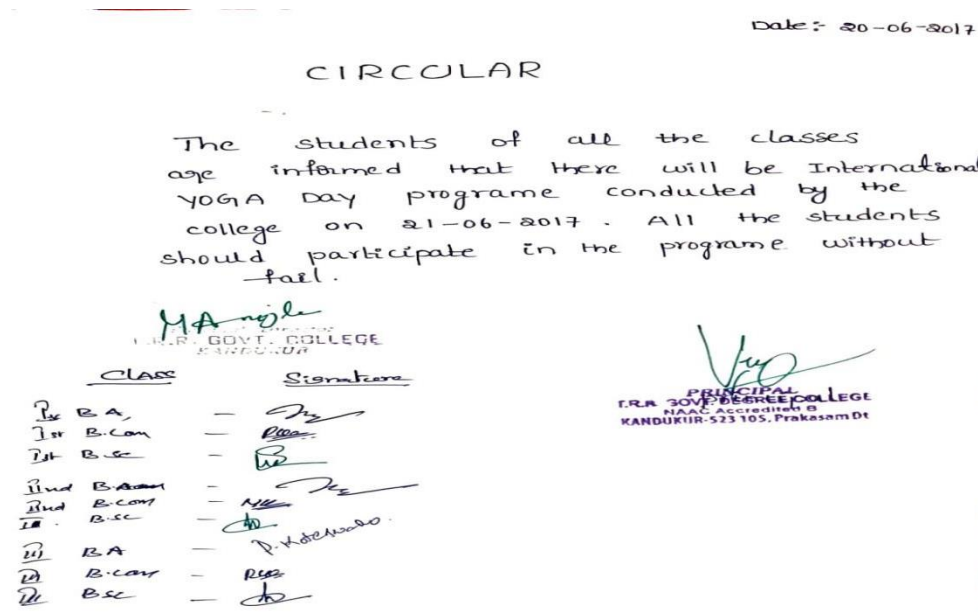 Date:- 20-06-2017
CIRCULAR
The students of all the classes
are informed that there will be International
YOGA Day programe conducted by the
college on 21-06-2017. All the students
should participate in the programe without
fail.
GOVT. COLLEGE
KANDUKUR
PRINCIPAL
T.R.R. GOVT. DEGREE COLLEGE
NAAC Accredited B
KANDUKUR-523 105, Prakasam Dt
CLASS Signature
Ist BA, -
Ist B.Com -
Ist B.Sc -
IInd BA -
IInd B.com -
II. B.SC -
III BA - P. Koteswado.
III B.com -
III BSC -